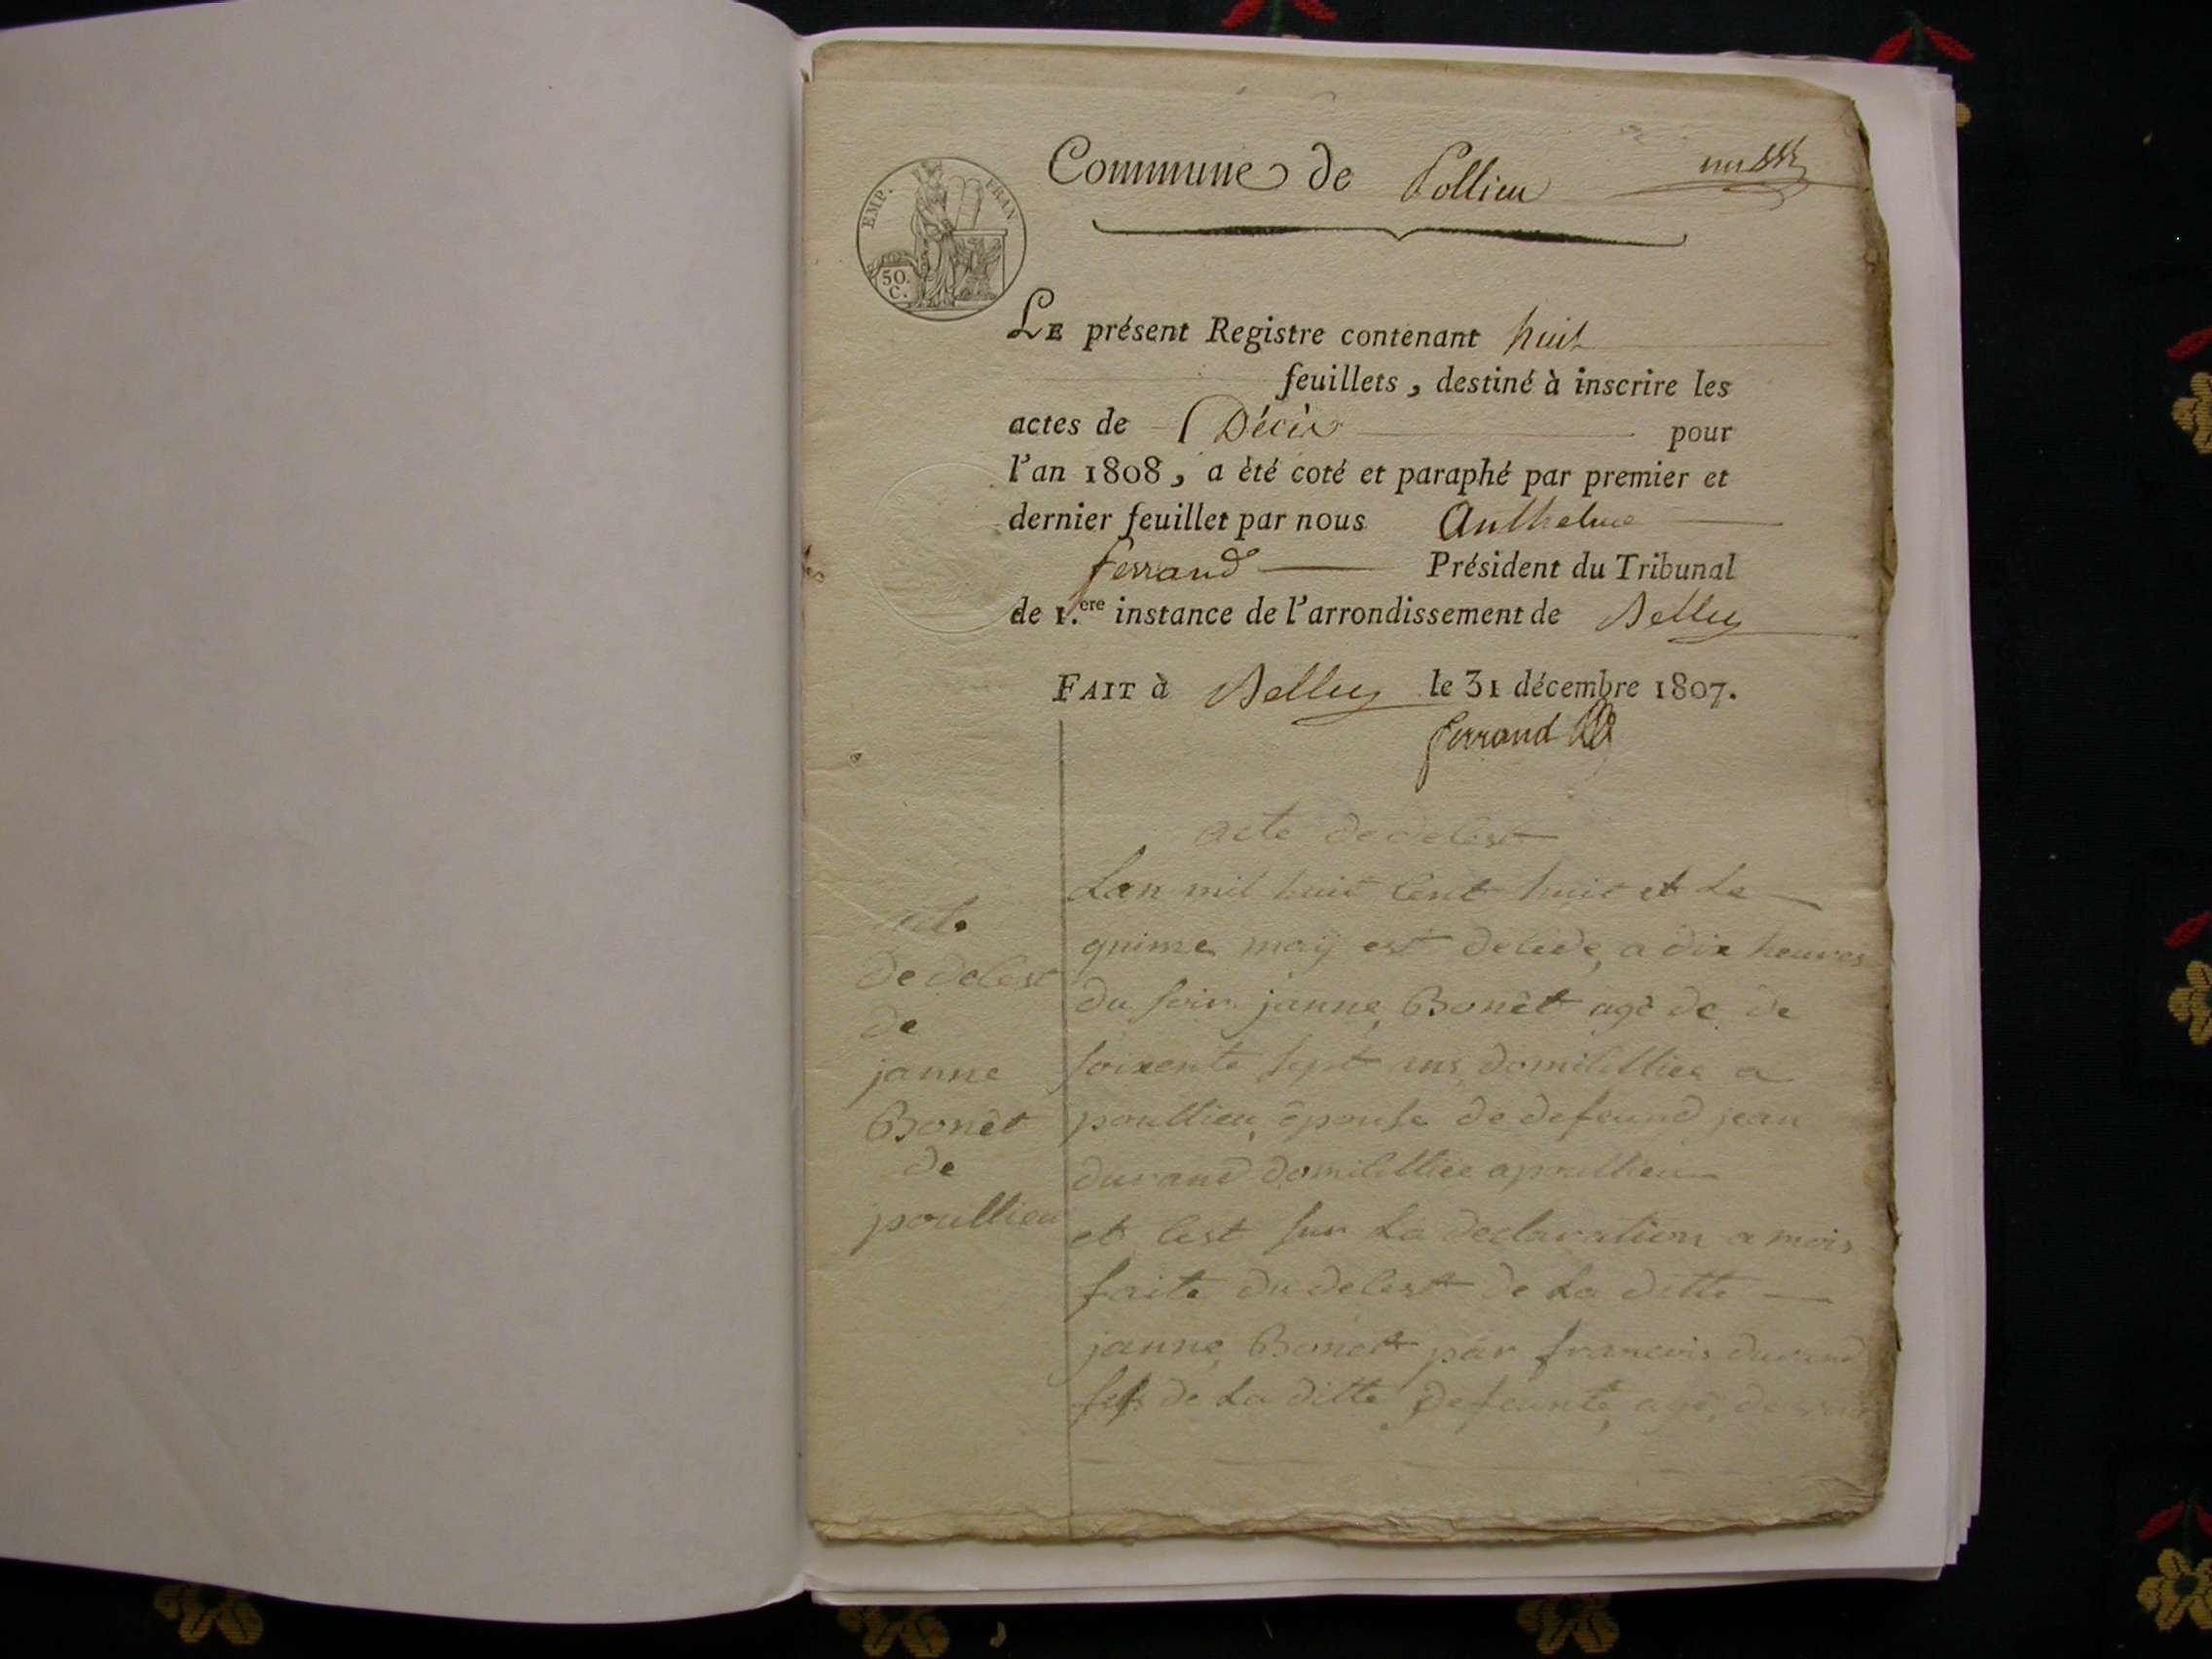 Commune de Pollieu
EMP. FRAN
50.
C.
LE présent Registre contenant huit
feuillets, destiné à inscrire les
actes de Décès pour
l'an 1808, a été coté et paraphé par premier et
dernier feuillet par nous Anthelme
ferrand Président du Tribunal
de 1.ere instance de l'arrondissement de Belley
FAIT à Belley le 31 décembre 1807.
ferrand
acte de decest
Lan mil huit cent huit et Le
quinze maÿ est decede, a dix heures
du soir janne Bonêt agé de de
soixente sept ans domicilliee a
poullieu épouse de defeund jean
durand domicilliee a poullieu
et cest sur La declaration a mois
faite du decest de La ditte
janne Bonet par francois durand
fils de La ditte defeunte agé de
acte
de decest
de
janne
Bonêt
de
poullieu